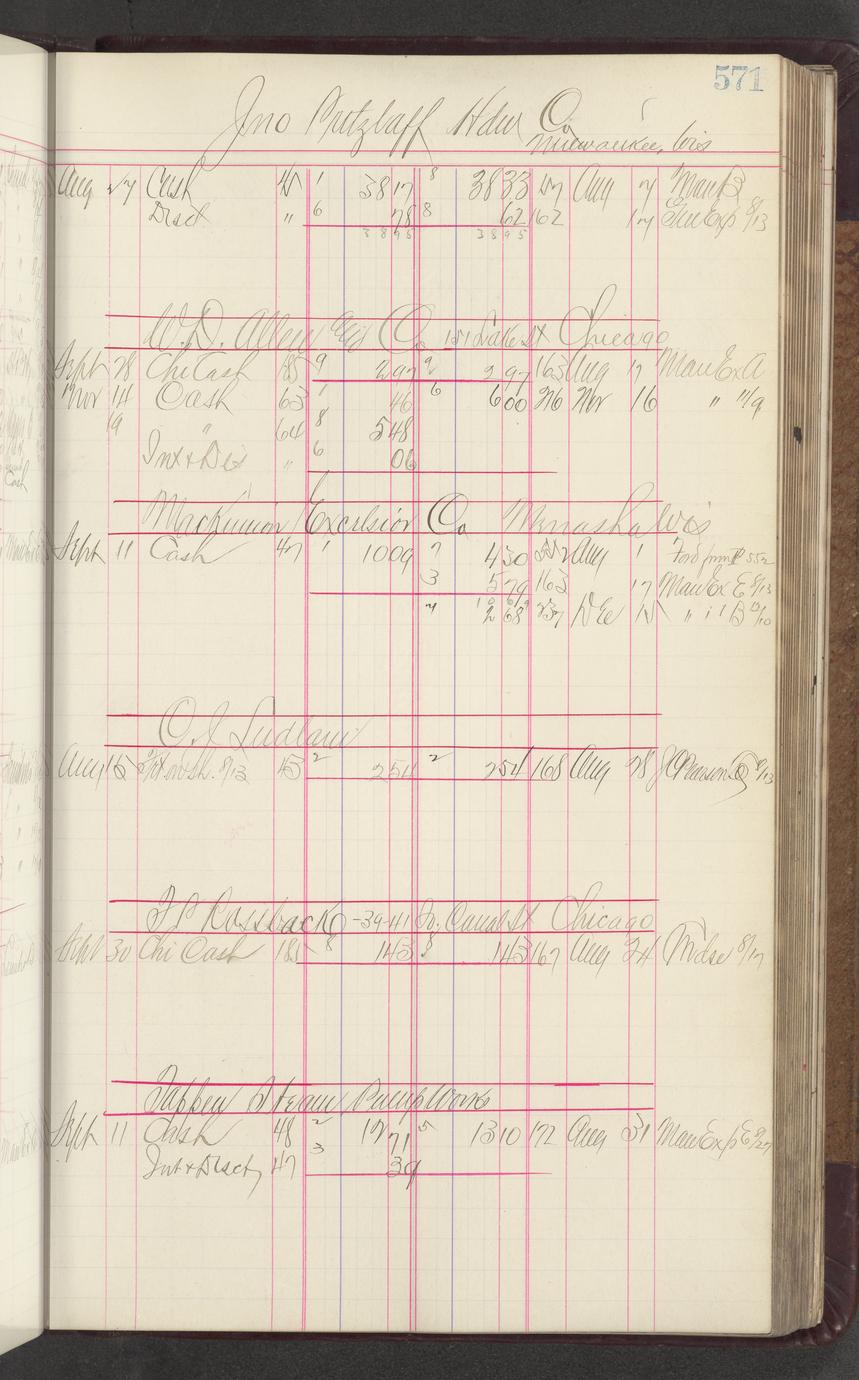 571
Jno Pritzlaff Hdw Co
Milwaukee, Wis
Aug 27 Cash 45 1 3817 8 3833 157 Aug 7 Man B
Disct " 6 78 8 62 162 17 Gen Exp 8/13
3895 3895
W.D. Allen Mfg Co 151 Lake St Chicago
Sept 28 Chi Cash 185 9 297 9 297 163 Aug 17 Man Ex A
Nov 14 Cash 63 1 46 6 600 26 Nov 16 " 11/9
19 " 64 8 548
Int & Dis " 6 06
MacKinnon Excelsior Co Menasha Wis
Sept 11 Cash 47 1 1009 7 430 Aug 1 Ford from P 552
3 579 163 17 Man Ex E 8/13
1009
4 268 237 Dec 15 " B
O.J. Ludlam
Aug 15 8/13 43 2 254 2 254 168 Aug 28 J C Pearson 8/13
F P Rossback -39-41 So. Canal St Chicago
Sept 30 Chi Cash 185 8 143 8 143 167 Aug 24 Mdse 8/17
Tappen Steam Pump Works
Sept 11 Cash 48 2 1271 5 1310 172 Aug 31 Man Exp E 8/27
Int & Disct 47 3 39